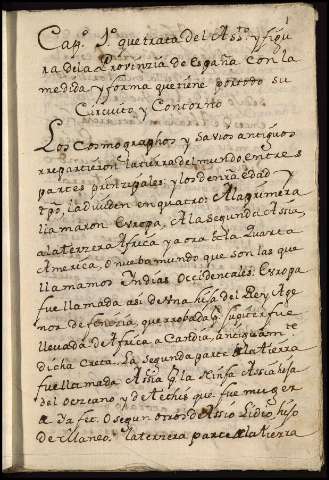 1
Capº 1º que trata del Assº y figu
ra dela Provinzia de España con la
medida y forma que tiene portodo su
Circuito y Contorno
Los Cosmographos y Savios antiguos
repartieron la tierra del mundo, entres
partes prinzipales; y los denrã edad y
tpõ, la dividen en quatro: Ala primera
llamaron Europa, Ala Segunda Asia,
ala terzera Africa y a ora âla Quarta
America, o nuebo mundo que son las que
llamamos Indias Occidentales: Europa
fue llamada asi de Una hija del Rey Age
nor de fenizia, que robada pr Jupiter fue
llevada de Africa a Candia, antiguamte
dicha Creta. La segunda parte de la tierra
fue llamada Assia pr la Ninfa Assia hija
del Occeano y de Techis que fue muger
a Jafet. O segun otros de Assio Lidio, hijo
de Maneo. la terzera parte de la tierra